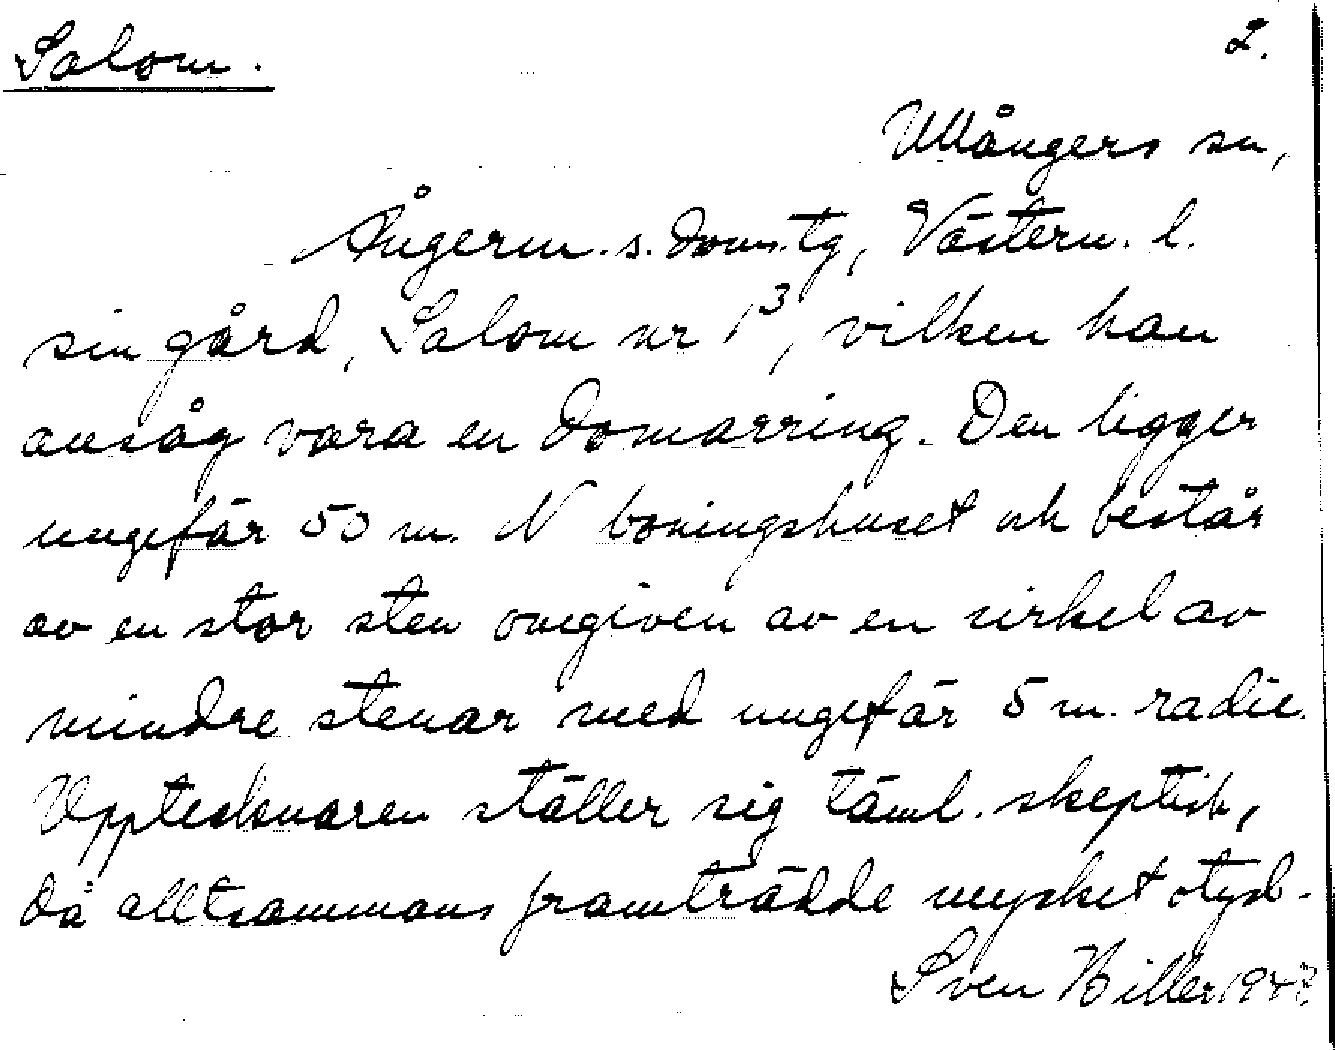 Salom.
2.
Ullångers sn,
Ångerm. s. doms.tg, Västern. l.
sin gård, Salom nr 1³, vilken han
ansåg vara en domarring. Den ligger
ungefär 50 m. N boningshuset och består
av en stor sten omgiven av en cirkel av
mindre stenar med ungefär 5 m. radie.
Upptecknaren ställer sig täml. skeptisk,
då alltsammans framträdde mycket otyd-
Sven Biller